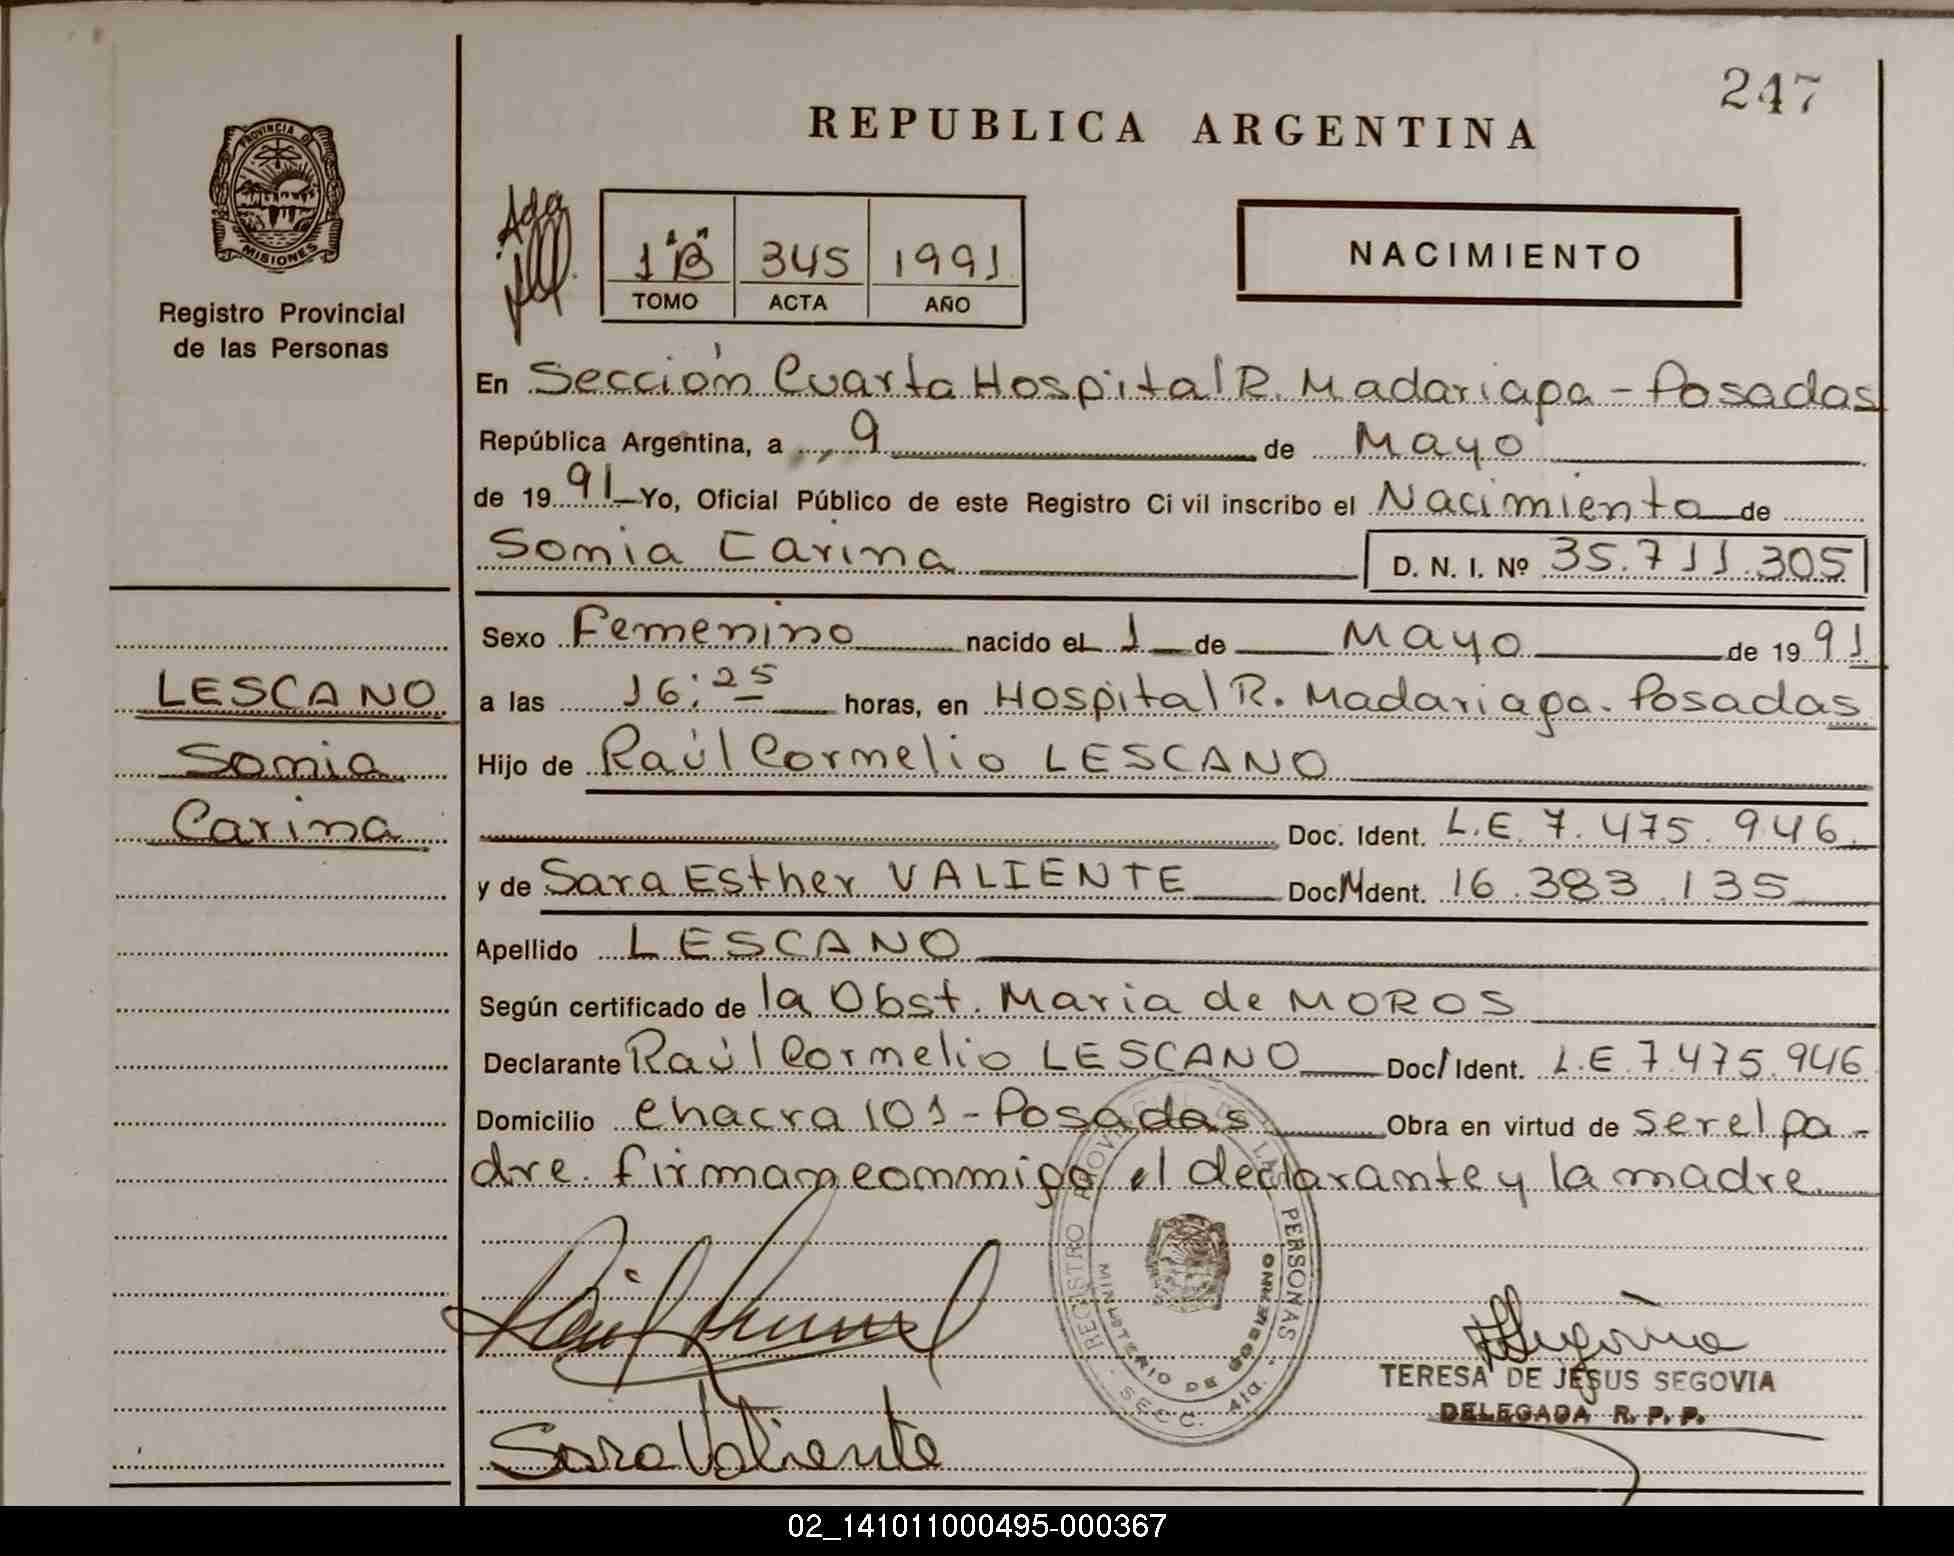 247
REPUBLICA ARGENTINA
PROVINCIA DE MISIONES
Registro Provincial
de las Personas
1 "B" 345 1991
TOMO ACTA AÑO
NACIMIENTO
En Sección Cuarta Hospital R. Madariaga - Posadas
República Argentina, a 9 de Mayo
de 1991 Yo, Oficial Público de este Registro Civil inscribo el Nacimiento de
Sonia Carina D. N. I. Nº 35.711.305
Sexo Femenino nacido el 1 de Mayo de 1991
LESCANO
a las 16:25 horas, en Hospital R. Madariaga. Posadas
Sonia
Hijo de Raúl Cornelio LESCANO
Carina
Doc. Ident. L.E. 7.475.946.
y de Sara Esther VALIENTE Doc. Ident. 16.383.135
Apellido LESCANO
Según certificado de la Obst. Maria de MOROS
Declarante Raúl Cornelio LESCANO Doc/Ident. L.E 7.475.946
Domicilio chacra 101 - Posadas Obra en virtud de ser el pa-
dre. firman conmigo el declarante y la madre.
REGISTRO PROVINCIAL DE LAS PERSONAS
MINISTERIO DE GOBIERNO
SECC. 4ta.
Sara Valiente
TERESA DE JESUS SEGOVIA
DELEGADA R. P. P.
02_141011000495-000367